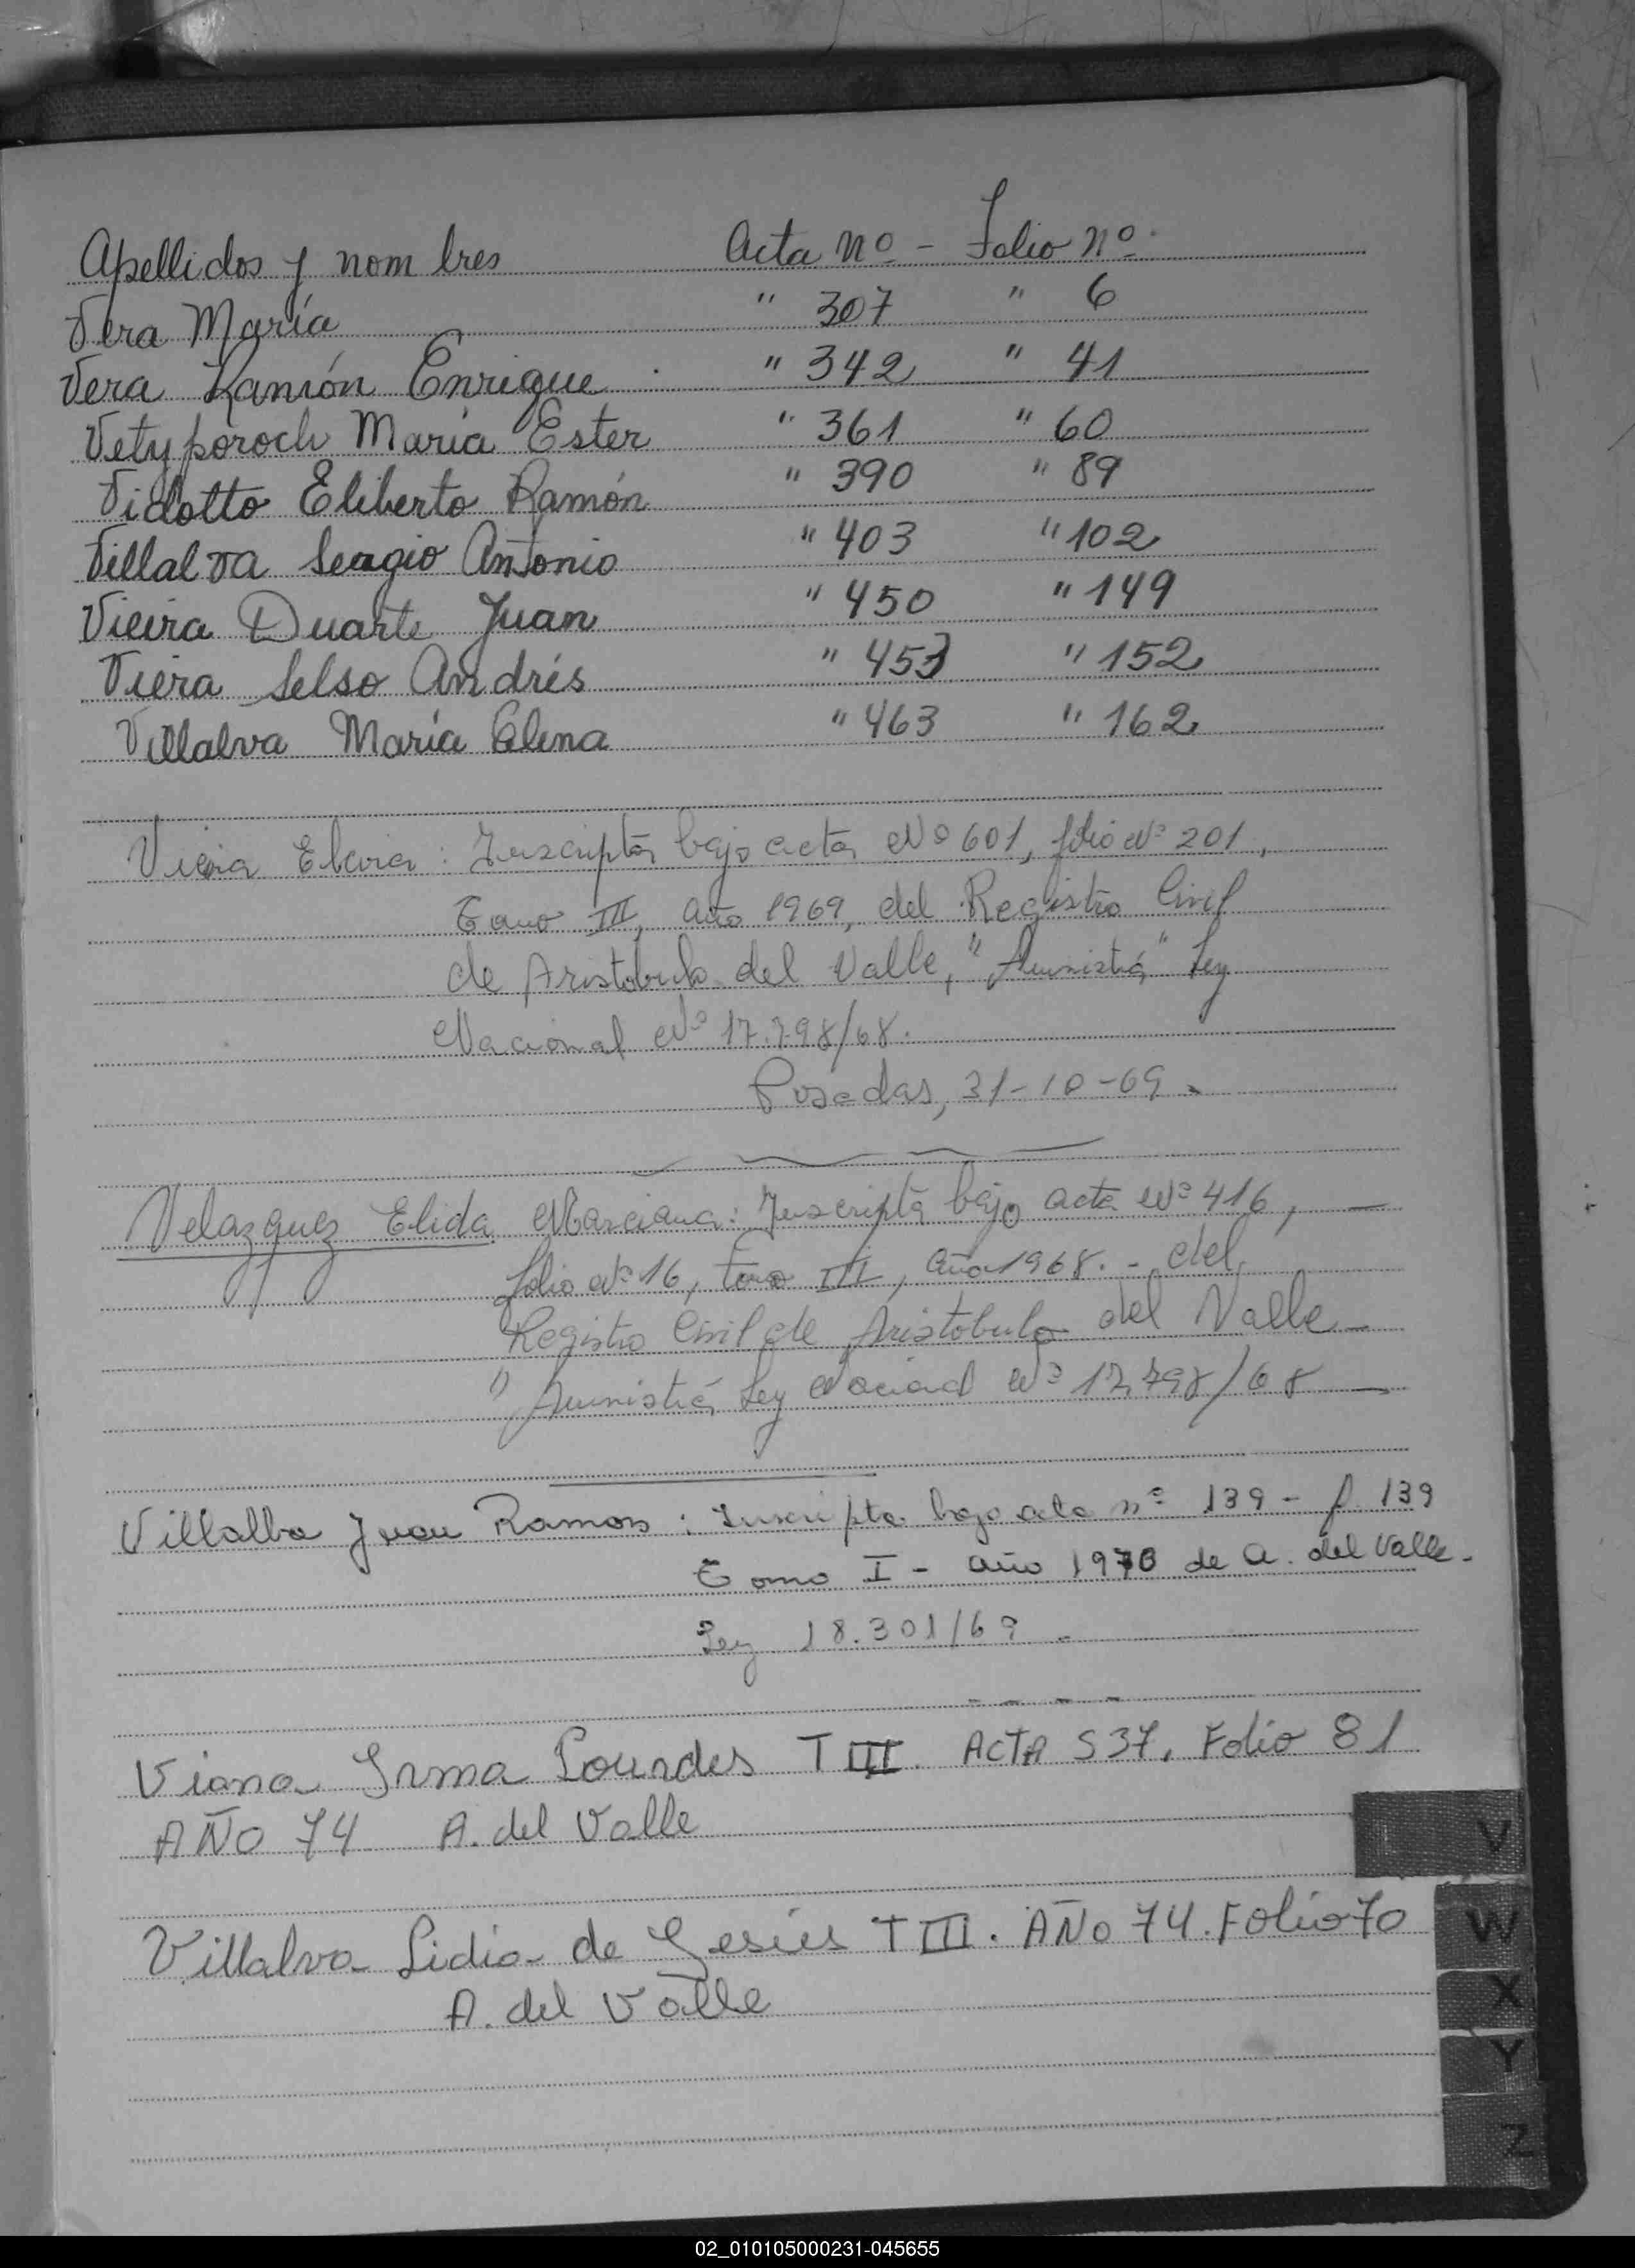 Apellidos y nombres Acta nº - Folio nº
Vera María " 307 " 6
Vera Ramón Enrique " 342 " 41
Vetyporoch María Ester " 361 " 60
Vidotto Eliberto Ramón " 390 " 89
Villalva Sergio Antonio " 403 " 102
Vieira Duarte Juan " 450 " 149
Viera Selso Andrés " 453 " 152
Villalva María Elena " 463 " 162
Vieira : Inscripta bajo acta Nº 601, folio Nº 201,
Tomo III, año 1969, del Registro Civil
de Aristobulo del Valle, "Amnistía" Ley
Nacional Nº 17.798/68.
Posadas, 31-10-69.
Velazquez Elida Marciana: Inscripta bajo acta Nº 416,
folio Nº 16, tomo III, año 1968. - del
Registro Civil de Aristobulo del Valle
" Amnistía Ley Nacional Nº 17.798/68
Villalba Juan Ramon : Inscripto bajo acta nº 139 - f 139
Tomo I - año 1970 de A. del Valle.
Ley 18.301/69 -
Viana Irma Lourdes T III. ACTA 537. Folio 81
AÑO 74 A. del Valle
Villalva Lidia de Jesús T III. AÑO 74. Folio 70
A. del Valle
V
W
X
Y
Z
02_010105000231-045655